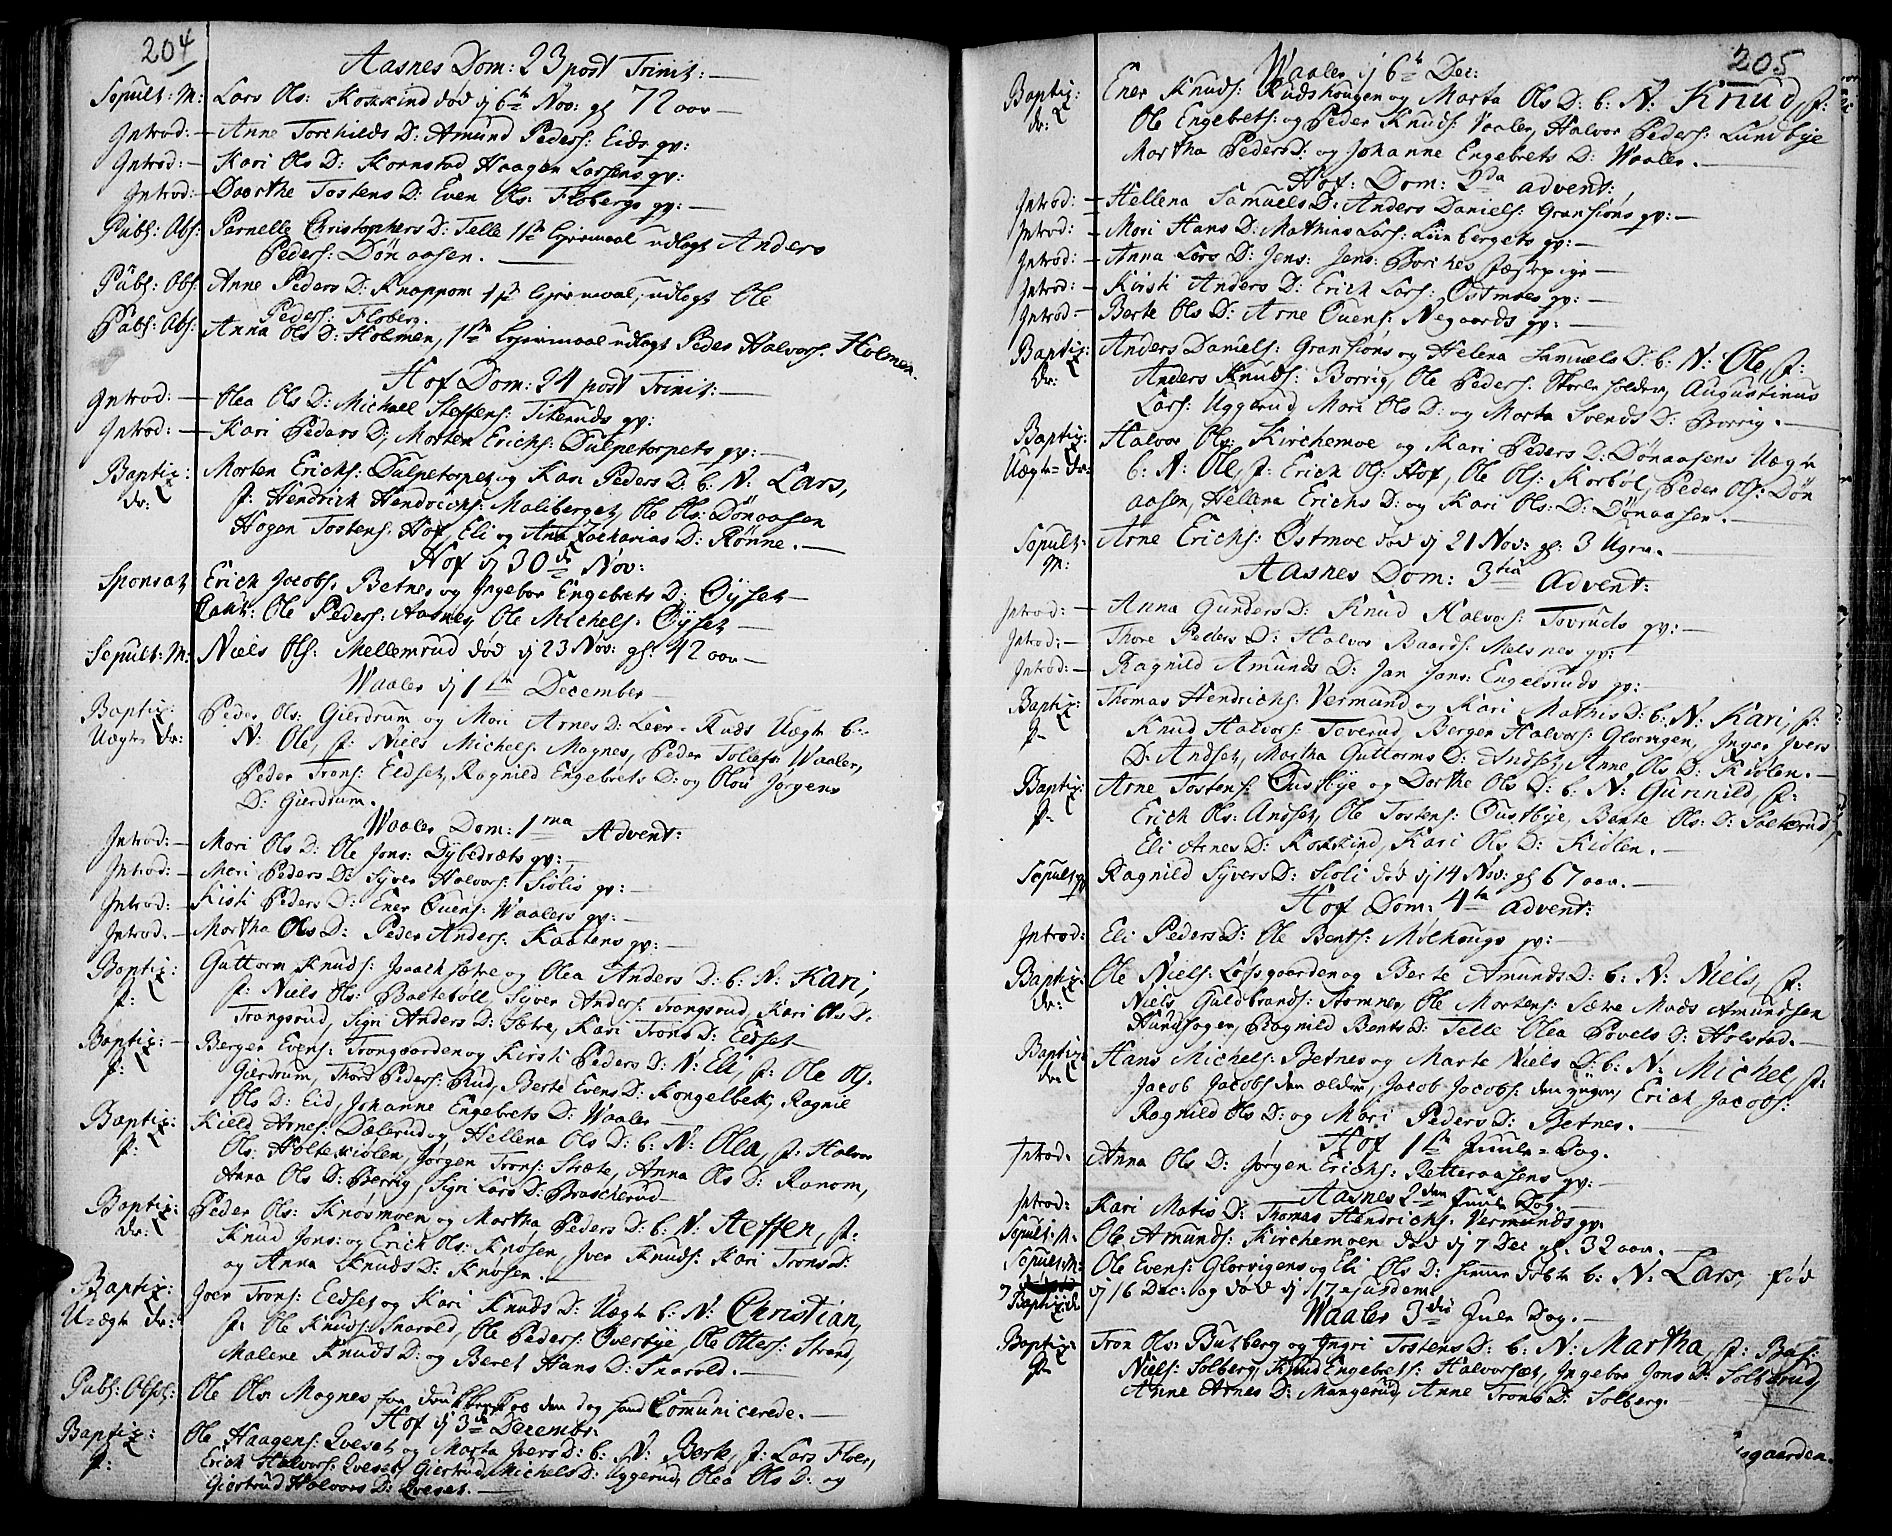 204
Aasnes Dom: 23 post Trinit:
Sepult: M: Lars Ols: Kokkind død d 6te Nov: gl 72 aar
Introd: Anne Torchilds D: Amund Peders: Eids qv:
Introd: Kari Ols D: Kornstad Haagen Larsens qv:
Introd: Dorthe Tostens D: Even Ols: Flobergs qv:
Publ: Abs: Pernelle Christophers D: Telle 1ste Leiermaal udlagt Anders
Peders: Dønaasen.
Publ: Abs: Anne Peders D: Knappom 1ste Leiermaal, udlagt Ole
Peders: Floberg.
Publ: Abs: Anna Ols D: Holmen, 1ste Leiermaal udlagt Peder Halvors: Holmen.
Hof Dom: 24 post Trinit:
Introd: Olea Ols D: Michael Steffens: Titeruds qv:
Introd: Kari Peders D: Morten Erichs: Dulpetorpets qv:
Baptiz: Morten Erichs: Dulpetorpet og Kari Peders D: b: N: Lars,
dr: f: Hendrich Hendrichs: Maliberget, Ole Ols: Dønaasen
Hagen Tostens: Hof, Eli og Ana Zacharias D: Rønne.
Hof d 30de Nov:
Sponsat Erich Jacobs: Betnes og Ingebor Engebrets D: Øyset
Caut: Ole Peders: Aasnes, Ole Michels: Øyset
Sepult: M: Niels Ols: Mellemrud død d 23 Nov: gl: 42 aar
Waaler d 1te December
Baptiz: Peder Ols: Gierdrum og Mari Arnes D: Leer-Ruds Uægte b:
Uægte dr: N: Ole, f: Niels Michels: Magnes, Peder Tollefs: Waaler,
Peder Trons: Eidset, Ragnild Engebrets D: og Olou Jørgens
D: Gierdrum.
Waaler Dom: 1ma Advent:
Introd: Mari Ols D: Ole Jons: Dybedræts qv:
Introd: Mari Peders D: Syver Halvors: Siolis qv:
Introd: Kisti Peders D: Ener Ouens: Waalers qv:
Introd: Martha Ols D: Peder Anders: Kaatens qv:
Baptiz: Guttorm Knuds: Jsaachsætre og Olea Anders D: b: N: Kari,
f: f: Niels Ols: Baatebøll, Syver Anders: Trangsrud, Kari Ols D:
Trangsrud, Sigri Anders D: Sætre, Kari Trons D: Eidset
Baptiz: Berger Evens: Trongaarden og Kirsti Peders D: N: Eli, f: Ole Ols:
f: Gierdrum, Thord Peders: Rud, Berte Evens D: Kongelbek, Ragnil
Ols D: Eid, Johanne Engebrets D: Waaler
Baptiz: Kield Arnes: Dælerud og Hellena Ols D: b: N: Olea, f: Halvor
f: Ols: Holtekiølen, Jørgen Trons: Sræte, Anna Ols D: Ranom,
Anna Ols D: Berrig, Sigri Lars D: Brascherud
Baptiz: Peder Ols: Knosmoen og Martha Peders D: b: N: Steffen, f:
dr: Knud Jons: og Erich Ols: Knosen, Jver Knuds: Kari Trons D:
og Anna Knuds D: Knosen.
Baptiz: Joen Trons: Eidset og Kari Knuds D: Uægte b: N: Christian,
Uægte dr: f: Ole Knuds: Snarold, Ole Peders: Overbye, Ole Ottes: Strand,
Malene Knuds D: og Beret Hans D: Snarold.
Publ: Abs: Ole Ols: Magnes for drukkenskab den dag hand Communicerede.
Hof d 3de Decembr:
Baptiz: Ole Haagens: Qveset og Marta Jvers D: b: N: Berte, f: Lars Floer,
f: Erich Halvors: Qveset, Giertrud Michels D: Uggerud, Olea Ols D: og
Giertrud Halvors D: Qveset.
205
Waaler d 6te Dec:
Baptiz: Ener Knuds: Rudshougen og Marta Ols D: b: N: Knud, f:
dr: Ole Engebrets: og Peder Knuds: Waaler, Halvor Peders: Lundbye
Martha Peders D: og Johanne Engebrets D: Waaler.
Hof: Dom: 2da advent:
Introd: Hellena Samuels D: Anders Daniels: Gransiøns qv:
Introd: Mari Hans D: Mathias Lars: Lunbergets qv:
Introd: Anna Lars D: Jens Jens: Borches Fæstepige
Introd: Kirsti Anders D: Erich Lars: Ostmoes qv:
Introd: Berte Ols D: Arne Ouens: Negaards qv:
Baptiz: Anders Daniels: Gransiøns og Helena Samuels D: b: N: Ole, f:
dr: Anders Knuds: Borrig, Ole Peders: Skorkholden, Augustinus
Lars: Uggerud Mari Ols D: og Marta Svends D: Borrig.
Baptiz: Halvor Ols: Kirchemoe og Mari Peders D: Dønaasens Uægte
Uægte dr: b: N: Ole, f: Erich Ols: Hof, Ole Ols: Korbøl, Peder Ols: Døn
aasen, Hellena Erichs D: og Kari Ols: D: Dønaasen.
Sepult: Arne Erichs: Østmoe død d 21 Nov: gl: 3 Ugen.
M:
Aasnes Dom: 3tia Advent:
Introd: Anna Gunders D: Knud Halvors: Toveruds qv:
Introd: Thore Peders D: Halvor Baards: Melsnes qv:
Introd: Ragnild Amunds D: Jan Jans: Engelsruds qv:
Baptiz: Thomas Hendrichs: Vermund og Kari Mathis D: b: N: Kari, f:
f: Knud Halvors: Toverud, Berger Halvors: Glorvigen, Inger Jvers
D: Andset, Martha Guttorms D: Andset, Anne Ols D: Kiølen.
Baptiz: Arne Tostens: Oustbye og Dorthe Ols D: b: N: Gunnild f:
f: Erich Ols: Andset, Ole Tostens: Oustbye, Bente Ols: D: Sætterud
Eli Arnes D: Kokkind, Kari Ols D: Kiølen.
Sepult: qv Ragnild Syvers D: Sioli død d 14 Nov: gl 67 aar.
Hof Dom: 4ta advent:
Introd: Eli Peders D: Ole Bents: Melhougs qv:
Baptiz: Ole Niels: Løfsgaarden og Berte Amunds D: b: N: Niels, f:
dr: Niels Guldbrands: Stomner, Ole Mortens: Sætre Mads Amundsen
Hundfogen, Ragnild Bents D: Telle Olea Povels D: Holstad.
Baptiz: Hans Michels: Betnes og Marte Niels D: b: N: Michel, f:
dr: Jacob Jacobs: den ælder, Jacob Jacobs: den yngre, Erich Jacobs:
Ragnild Ols D: og Mari Peders D: Betnes.
Hof 1ste Juule-Dag.
Introd: Anna Ols D: Jørgen Erichs: Retteraasens qv:
Aasnes 2den Juule Dag.
Introd: Kari Matis D: Thomas Hendrichs: Vermunds qv:
Sepult: M. Ole Amunds: Kirchemoen død d 7 Dec gl. 32 aar.
Sepult: M: Ole Evens: Glorvigens og Eli Ols D: hiemme døbte b: N: Lars, fød
Baptiz: dr d 16 Dec: og død d 17 ejusdem.
Waaler 3die Juele Dag.
Baptiz: Tron Ols: Butberg og Ingri Tostens D: b: N: Martha, f: Baf:
f: Niels: Solberg, Knud Engebrets: Halvorset, Ingebor Jons D: Solberud,
Anne Arnes D: Mangerud, Anne Trons D: Solberg.
gaarden.